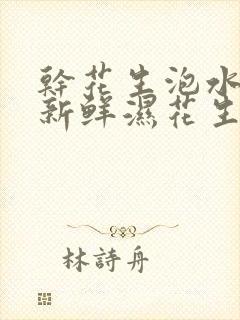 幹花生泡水
新鮮濕花生
林詩舟